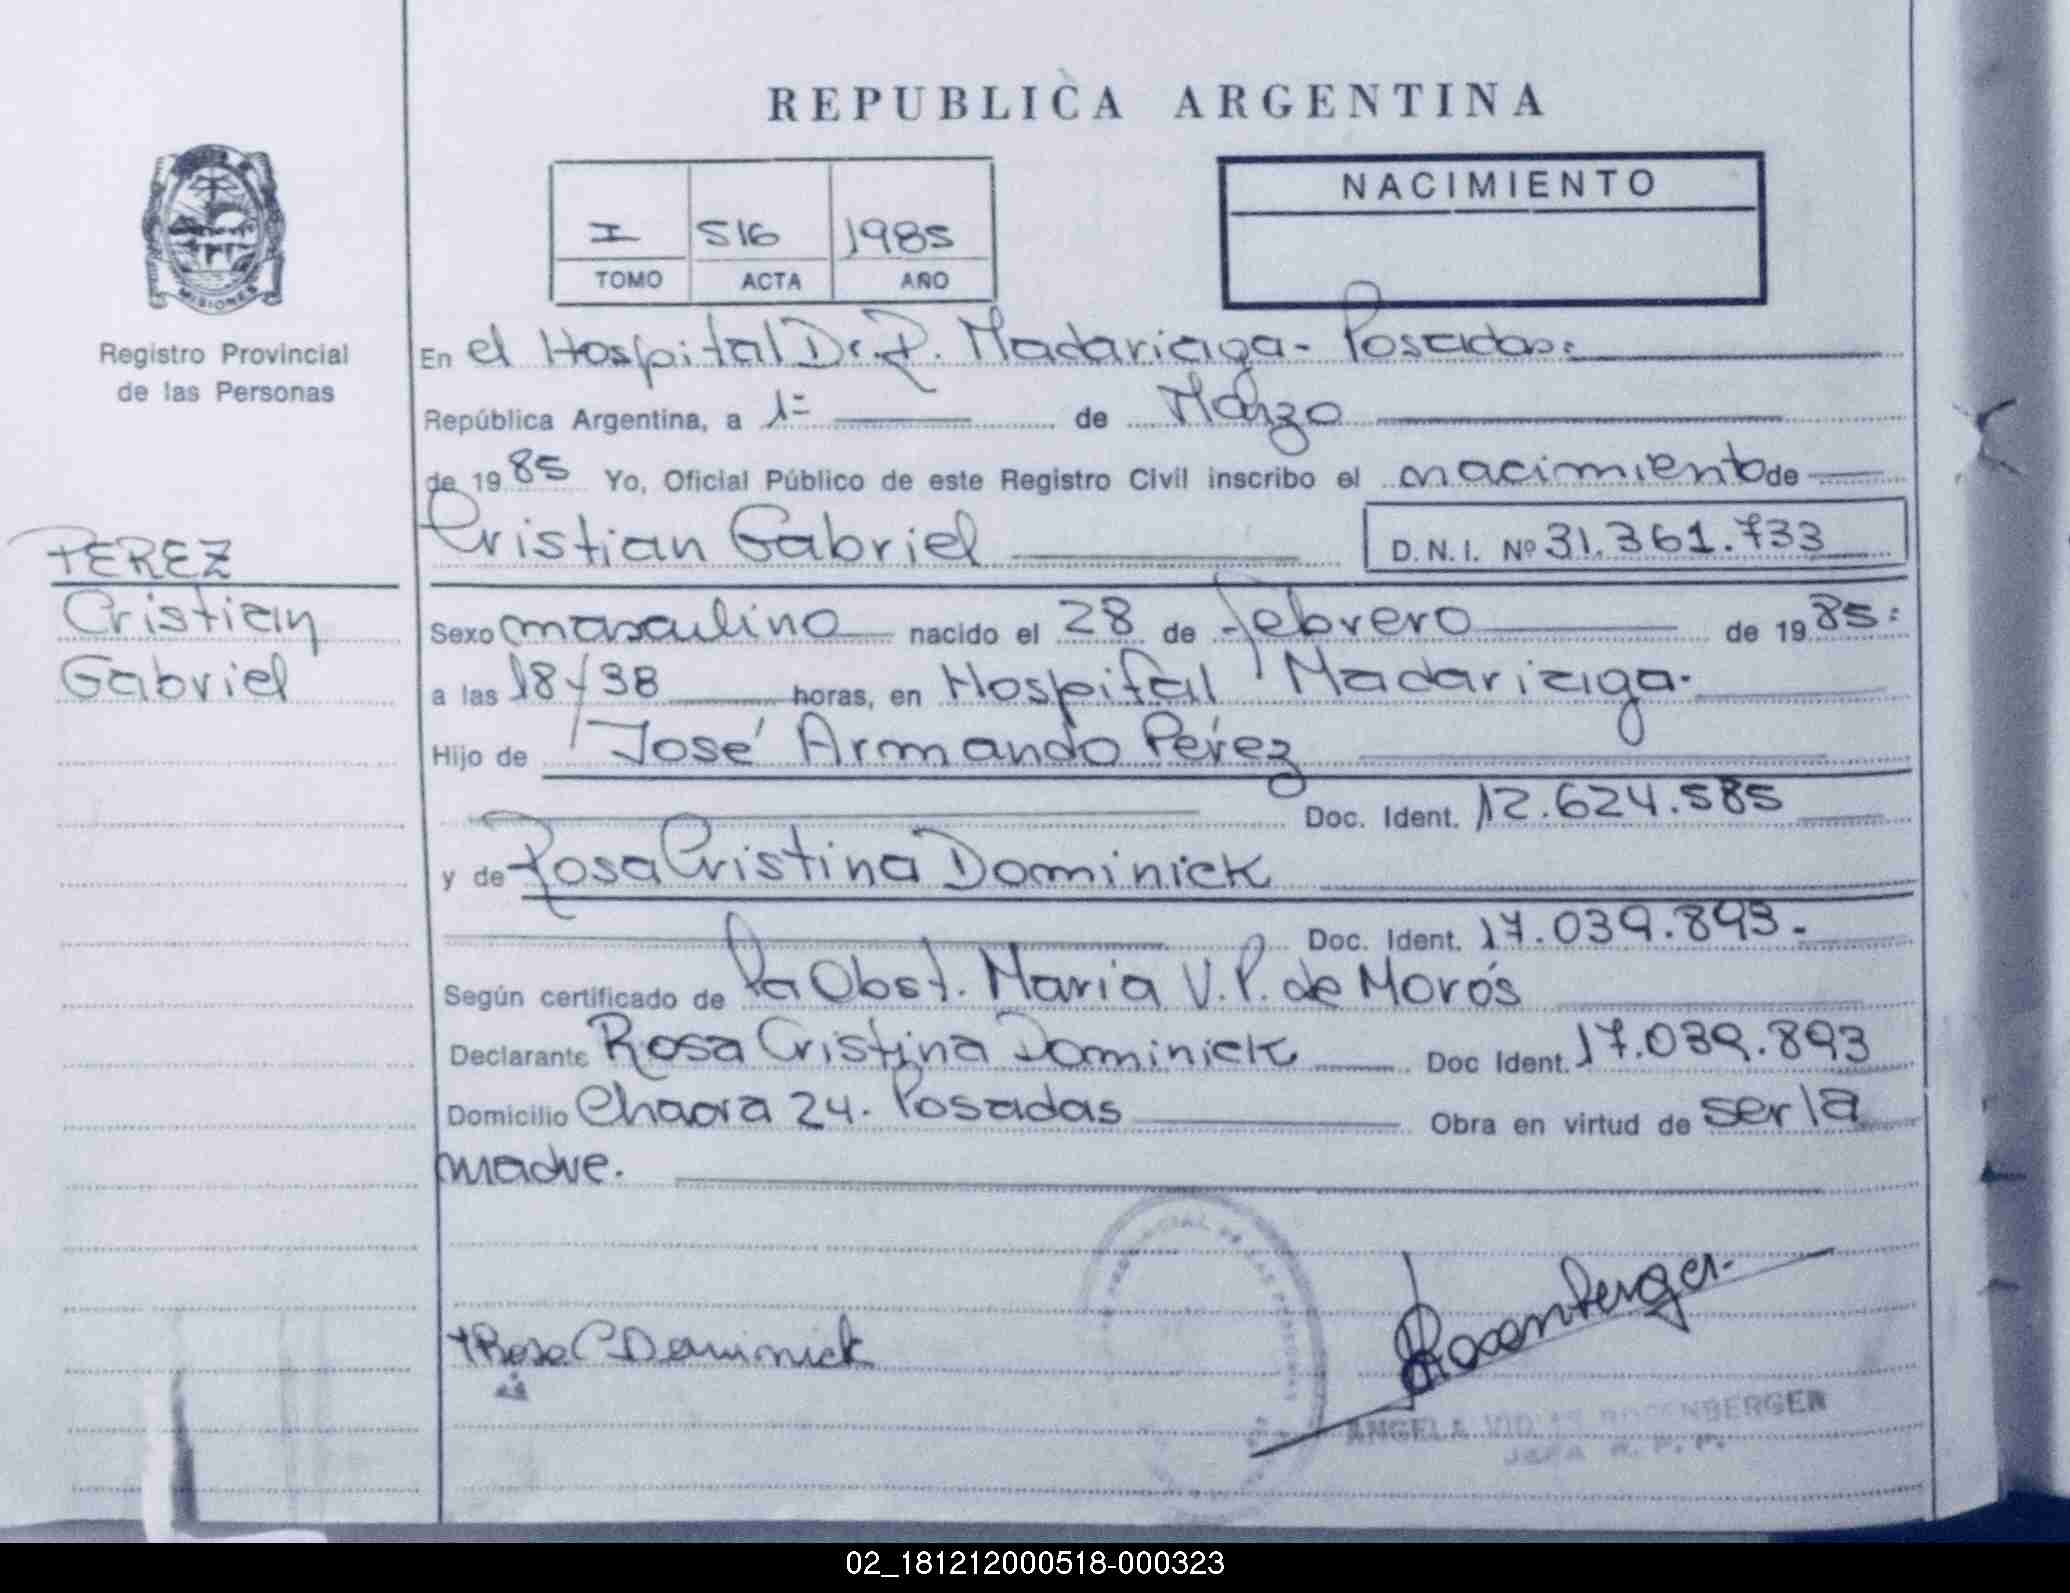 REPUBLICA ARGENTINA
MISIONES
Registro Provincial
de las Personas
I 516 1985
TOMO ACTA AÑO
NACIMIENTO
En el Hospital Dr. R. Madariaga - Posadas:
República Argentina, a 1º de Marzo
de 1985 Yo, Oficial Público de este Registro Civil inscribo el nacimiento de
Cristian Gabriel D.N.I. Nº 31.361.733
PEREZ
Cristian
Gabriel
Sexo masculino nacido el 28 de febrero de 1985:
a las 18/38 horas, en Hospital Madariaga.
Hijo de José Armando Pérez
Doc. Ident. 12.624.585
y de Rosa Cristina Dominick
Doc. Ident. 17.039.893.-
Según certificado de la Obst. Maria V. P. de Morós
Declarante Rosa Cristina Dominick Doc Ident. 17.039.893
Domicilio Chacra 24. Posadas Obra en virtud de ser la
madre.
Rosa C Dominick
Rosenberger
ANGELA ROSENBERGER
JEFA R. P. P.
02_181212000518-000323